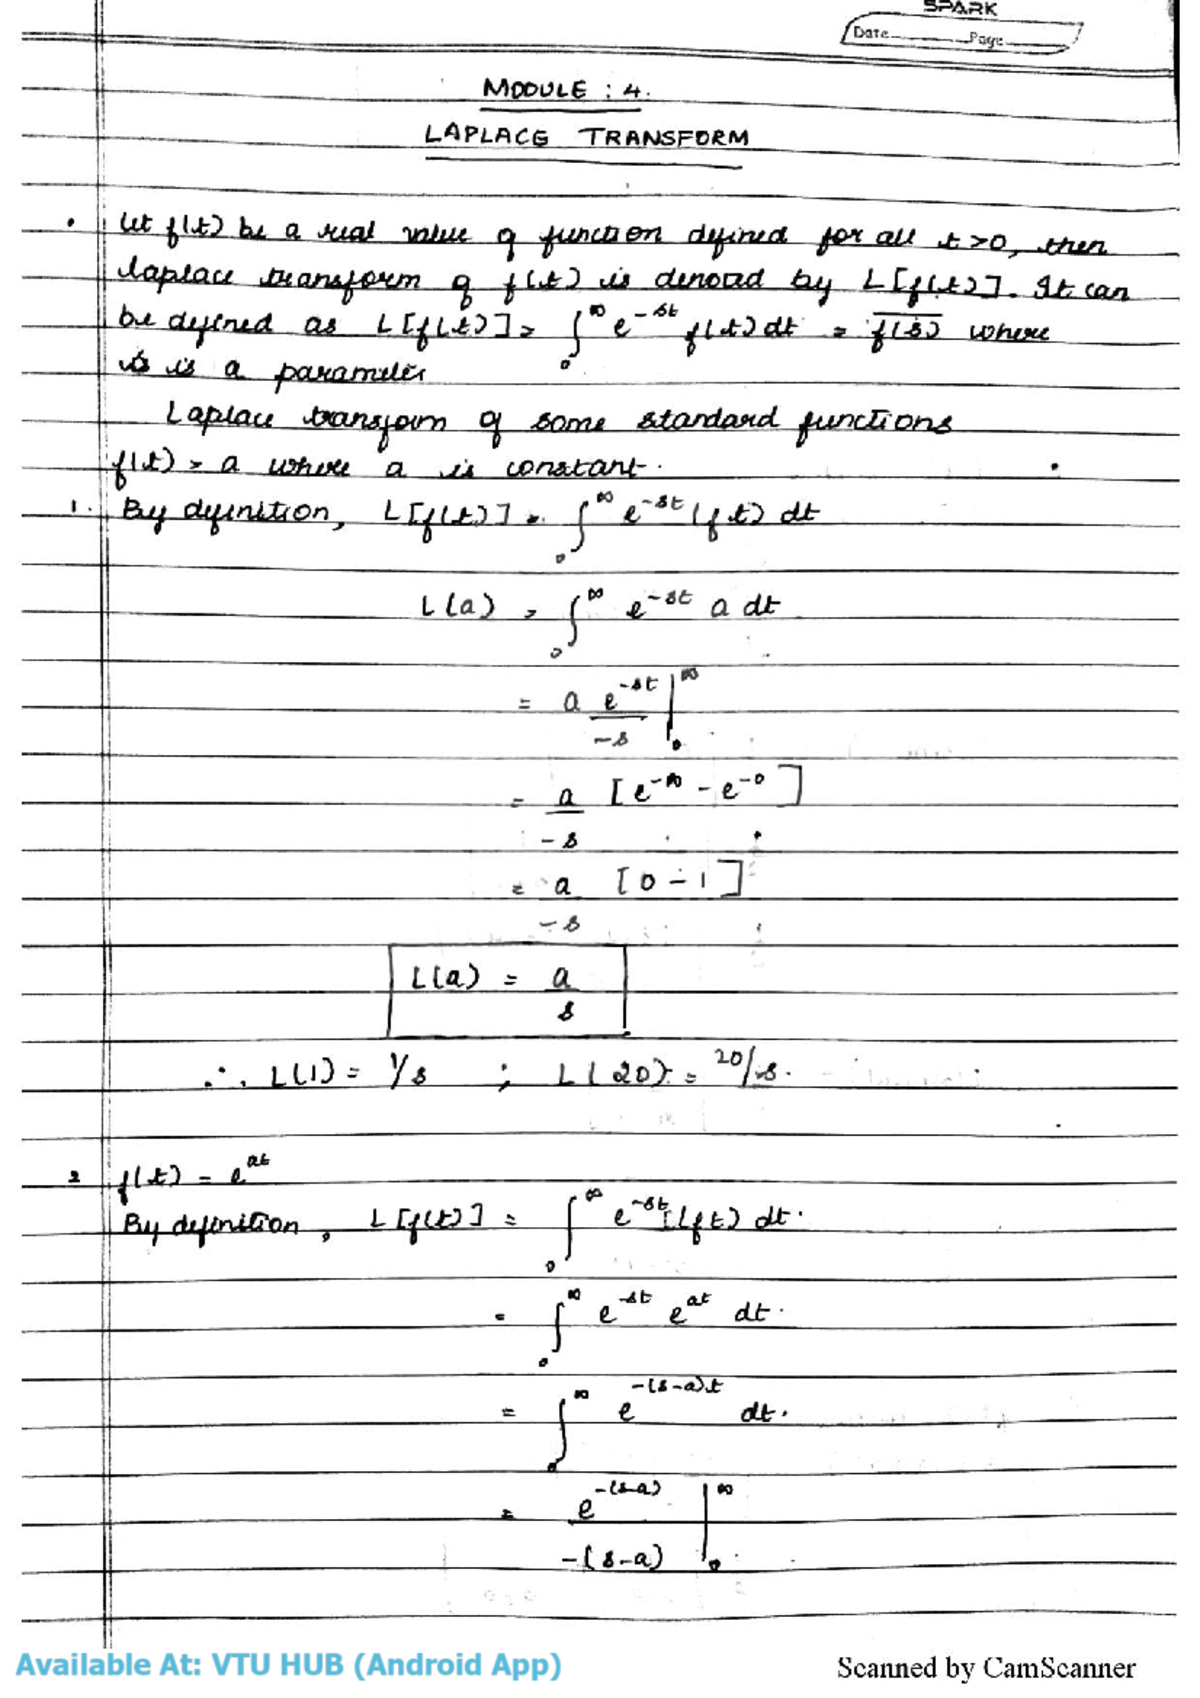 SPARK
Date Page
MODULE : 4.
LAPLACE TRANSFORM
• Let f(t) be a real value of function defined for all t>0, then
laplace transform of f(t) is denoted by L[f(t)]. It can
be defined as L[f(t)] = ∫₀^∞ e^{-st} f(t) dt = \overline{f(s)} where
's is a parameter
Laplace transform of some standard functions
f(t) = a where a is constant.
1. By definition, L[f(t)] = ∫₀^∞ e^{-st} (f t) dt
L(a) = ∫₀^∞ e^{-st} a dt
= a e^{-st}/-s |₀^∞
= a/-s [e^{-∞} - e^{-0}]
= a/-s [0 - 1]
L(a) = a/s
∴ L(1) = 1/s ; L(20) = 20/s.
2 f(t) = e^{at}
By definition, L[f(t)] = ∫₀^∞ e^{-st} [(f t) dt.
= ∫₀^∞ e^{-st} e^{at} dt.
= ∫₀^∞ e^{-(s-a)t} dt.
= e^{-(s-a)}/-(s-a) |₀^∞
Available At: VTU HUB (Android App)
Scanned by CamScanner